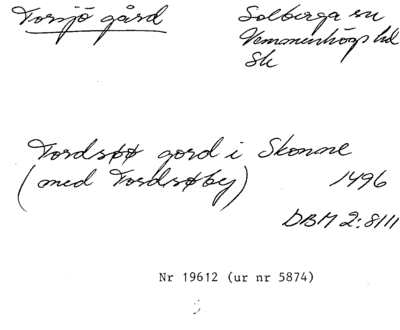 Torsjö gård
Solberga sn
Vemmenhögs hd
Sk
Tordsøø gord i Skonne
(med Tordsøby) 1496
DBM 2:8111
Nr 19612 (ur nr 5874)